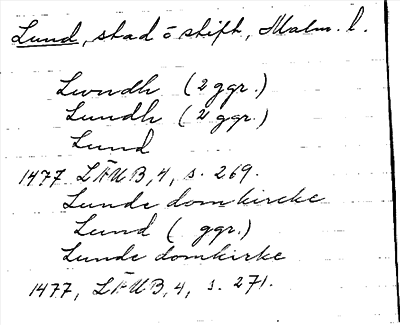 Lund, stad o stift, Malm. l.
Lwndh (2 ggr.)
Lundh (2 ggr.)
Lund
1477 LÄUB, 4, s. 269.
Lunde domkircke
Lund ( ggr.)
Lunde domkirke
1477, LÄUB, 4, s. 271.